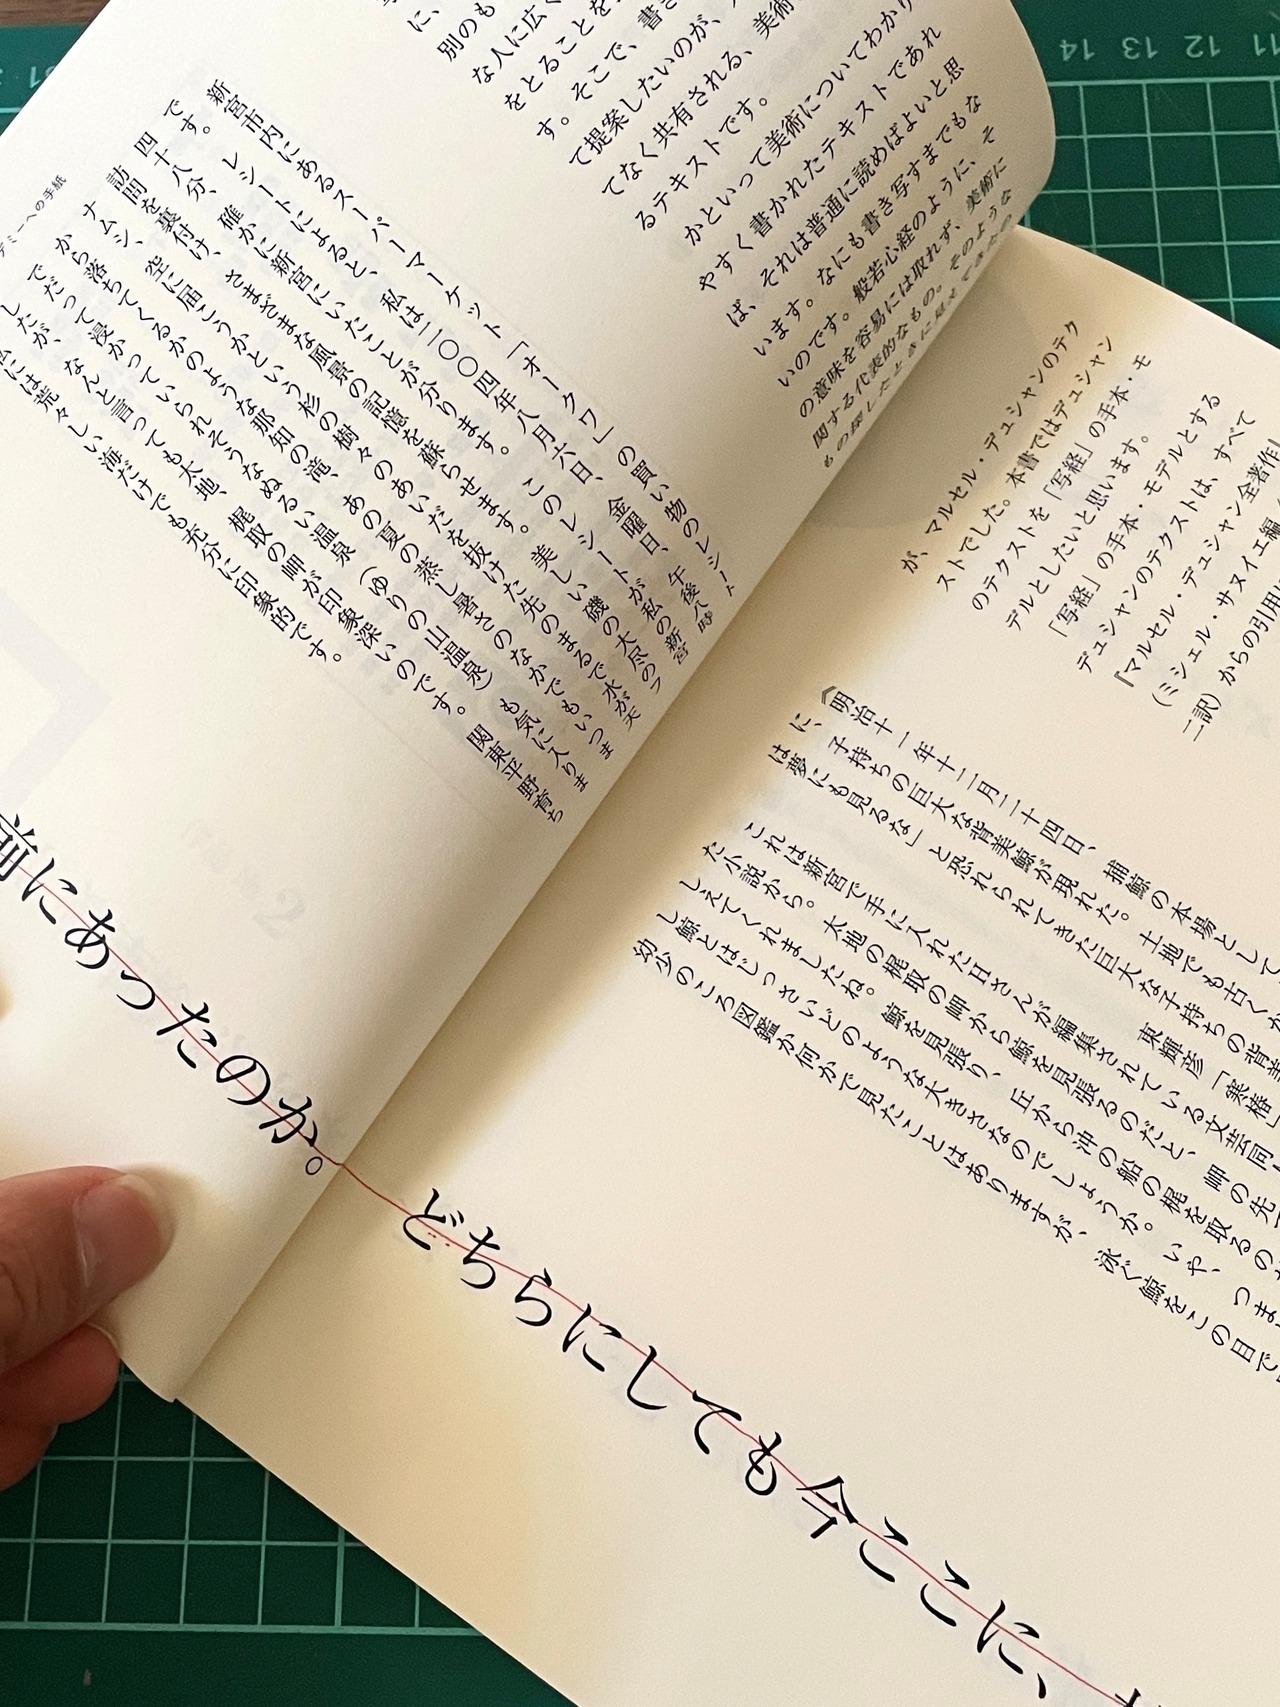 に、
別のも
な人に広く
をとることを
す。そこで、書き
て提案したいのが、
てなく共有される、美術
るテキストです。
かといって美術についてわかり
やすく書かれたテキストであれ
ば、それは普通に読めばよいと思
います。なにも書き写すまでもな
いのです。般若心経のように、そ
の意味を容易には取れず、美術に
関する代表的なもの。そのような
もの探したときに見えてきたの
新宮市内にあるスーパーマーケット「オークワ」の買い物のレシート
です。レシートによると、私は二〇〇四年八月六日、金曜日、午後八時
四十八分、確かに新宮にいたことが分ります。このレシートが私の新宮
訪問を裏付け、さまざまな風景の記憶を蘇らせます。美しい磯の大尽のフ
ナムシ、空に届こうかという杉の樹々のあいだを抜けた先のまるで水が天
から落ちてくるかのような那知の滝、あの夏の蒸し暑さのなかでもいつま
でだって浸かっていられそうなぬるい温泉（ゆりの山温泉）も気に入りま
したが、なんと言っても太地、梶取の岬が印象深いのです。関東平野育ち
私には荒々しい海だけでも充分に印象的です。
デミーへの手紙
が、マルセル・デュシャンのテク
ストでした。本書ではデュシャン
のテクストを「写経」の手本・モ
デルとしたいと思います。
「写経」の手本・モデルとする
デュシャンのテクストは、すべて
『マルセル・デュシャン全著作』
（ミシェル・サヌイエ編
二訳）からの引用
《明治十一年十二月二十四日、捕鯨の本場として
に、子持ちの巨大な背美鯨が現れた。土地でも古くか
は夢にも見るな」と恐れられてきた巨大な子持ちの背美
東輝彦「寒椿」
これは新宮で手に入れた日さんが編集されている文芸同
た小説から。太地の梶取の岬から鯨を見張るのだと、岬の先
しえてくれましたね。鯨を見張り、丘から沖の船の梶を取るの
し鯨とはじっさいどのような大きさなのでしょうか。いや、つまり
幼少のころ図鑑か何かで見たことはありますが、泳ぐ鯨をこの目で
にあったのか。どちらにしても今ここに、
14 13 12 11